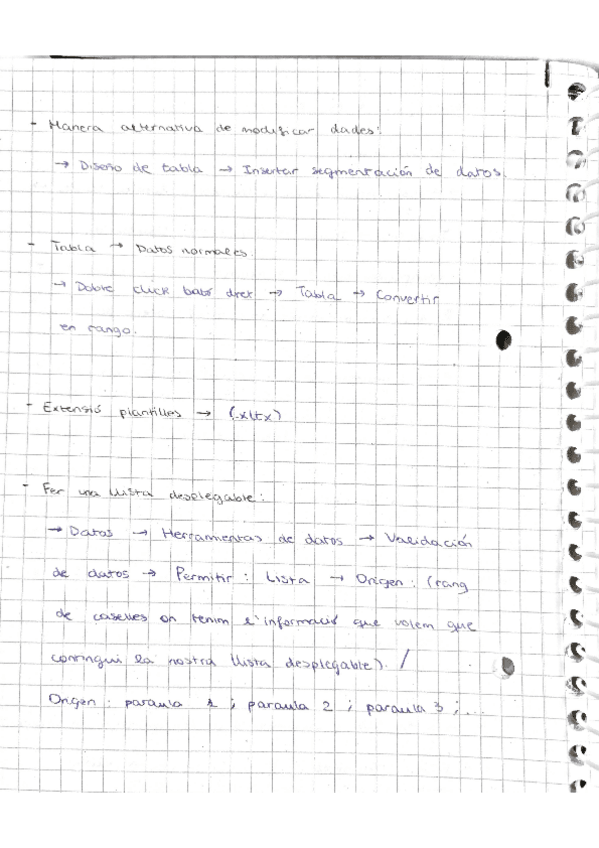 - Manera alternativa de modificar dades:
→ Diseño de tabla → Insertar segmentación de datos.
- Tabla → Datos normales.
→ Doble click botó dret → Tabla → Convertir
en rango.
- Extensió plantilles → (.xltx)
- Fer una llista desplegable:
→ Datos → Herramientas de datos → Validación
de datos → Permitir: Lista → Origen: (rang
de caselles on tenim l'informació que volem que
contingui la nostra llista desplegable). /
Origen: paraula 1; paraula 2; paraula 3; ...